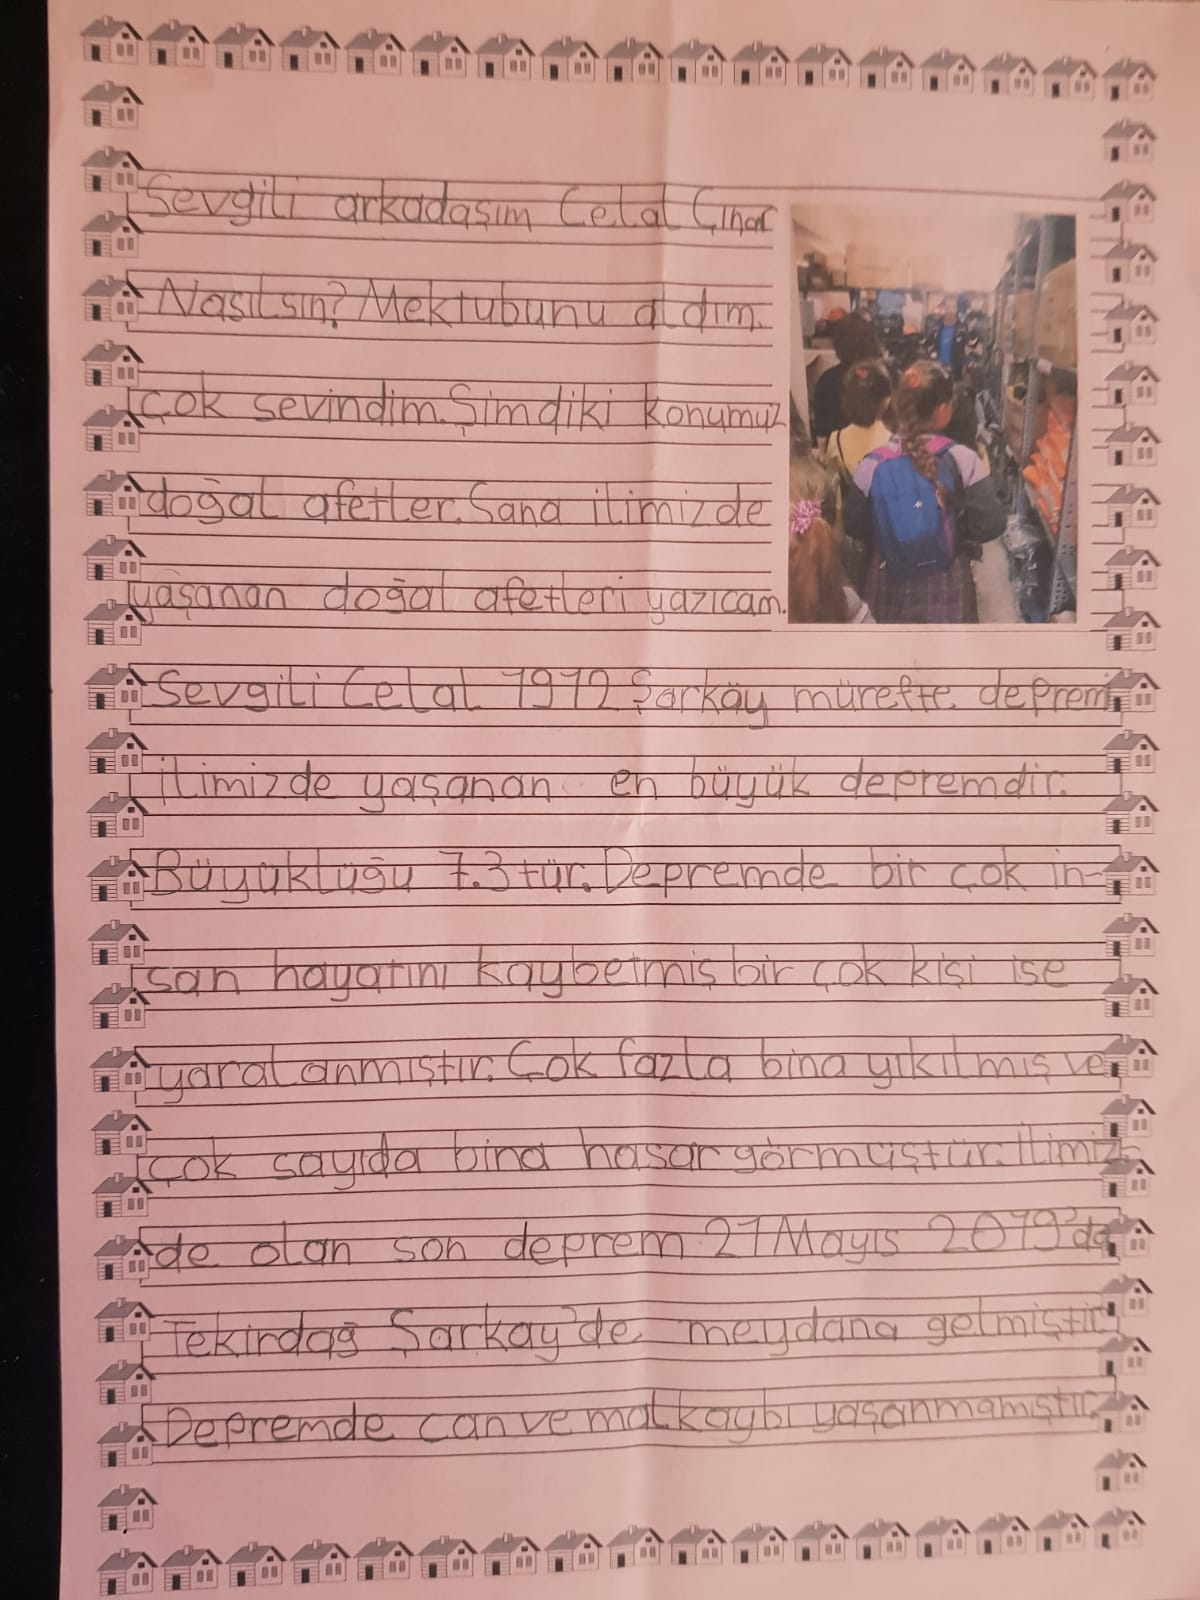 Sevgili arkadaşım Celal Çınar
Nasılsın? Mektubunu aldım.
çok sevindim. Şimdiki konumuz
doğal afetler. Sana ilimizde
yaşanan doğal afetleri yazıcam.
Sevgili Celal 1912 Şarköy mürefte deprem
ilimizde yaşanan en büyük depremdir.
Büyüklüğü 7.3 tür. Depremde bir çok in-
san hayatını kaybetmiş bir çok kişi ise
yaralanmıştır. Çok fazla bina yıkılmış ve
çok sayıda bina hasar görmüştür. İlimiz
de olan son deprem 27 Mayıs 2019'da
Tekirdağ Şarköy'de meydana gelmiştir
Depremde can ve mal kaybı yaşanmamıştır.